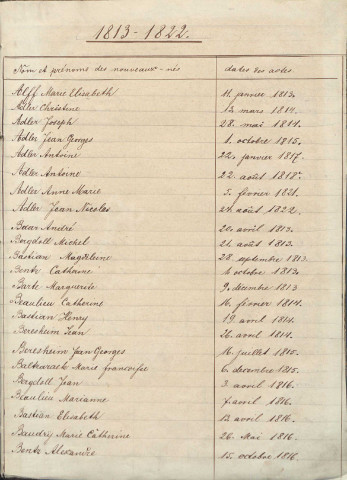 1813-1822.
Nom et prénoms des nouveaux-nés dates des actes
Alff Marie Elisabeth 11. janvier 1813.
Adler Christine 12 mars 1814.
Adler Joseph 28. mai 1814.
Adler Jean Georges 1. octobre 1815.
Adler Antoine 22. janvier 1817.
Adler Antoine 22. août 1818.
Adler Anne Marie 3. février 1821.
Adler Jean Nicolas août 1822.
Baar André 20. avril 1813.
Bergdoll Michel 21. août 1813.
Bastian Magdeleine 28. septembre 1813.
Bentz Catharine 6 octobre 1813.
Barte Marguerite 9. décembre 1813
Beaulieu Catherine 16. février 1814.
Bastian Henry 19. avril 1814.
Beresheim Jean 26. avril 1814.
Beresheim Jean Georges 16. juillet 1815.
Marie françoise 6. décembre 1815.
Bergdoll Jean 3. avril 1816.
Beaulieu Marianne 7. avril 1816.
Bastian Elisabeth 12. avril 1816.
Baudry Marie Catherine 26. Mai 1816.
Bentz Alexandre 15. octobre 1816.